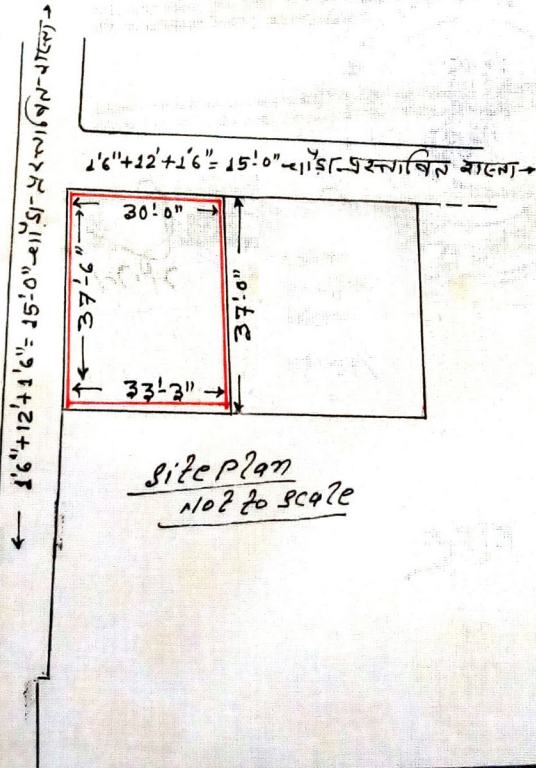 1'6"+12'+1'6"= 15'-0" প্রস্তাবিত রাস্তা
1'6"+12'+1'6"= 15'-0" প্রস্তাবিত রাস্তা
30'-0"
37'-6"
37'-0"
33'-3"
site plan
Not to scale